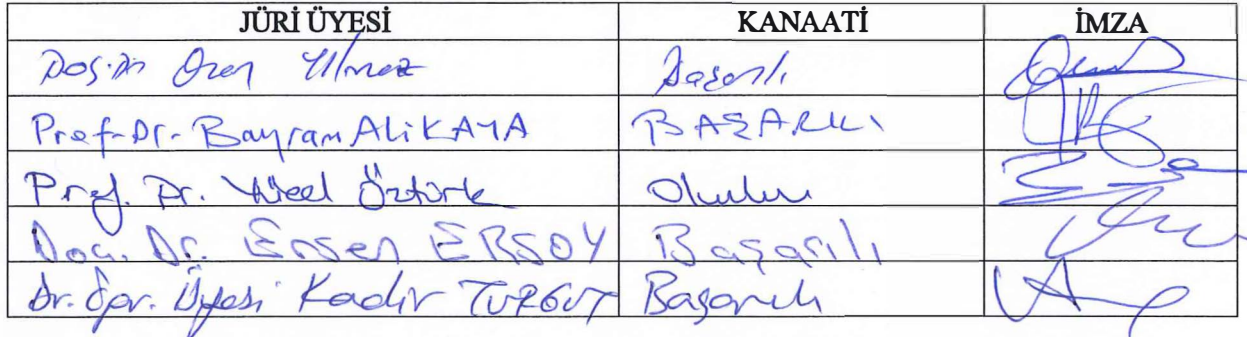 JÜRİ ÜYESİ KANAATİ İMZA
Doç. Dr Ozan Yılmaz Başarılı
Prof. Dr. Bayram Ali KAYA BAŞARILI
Prof. Dr. Yücel Öztürk Olumlu
Doç. Dr. Ersen ERSOY Başarılı
Dr. Öğr. Üyesi Kadir TURGUT Başarılı